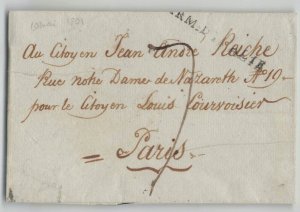 10 mai 1801
ARM. D'ITALIE
Au Citoyen Jean André Riche
Rue notre Dame de Nazareth No 19
pour le Citoyen Louis Courvoisier
= Paris =
7